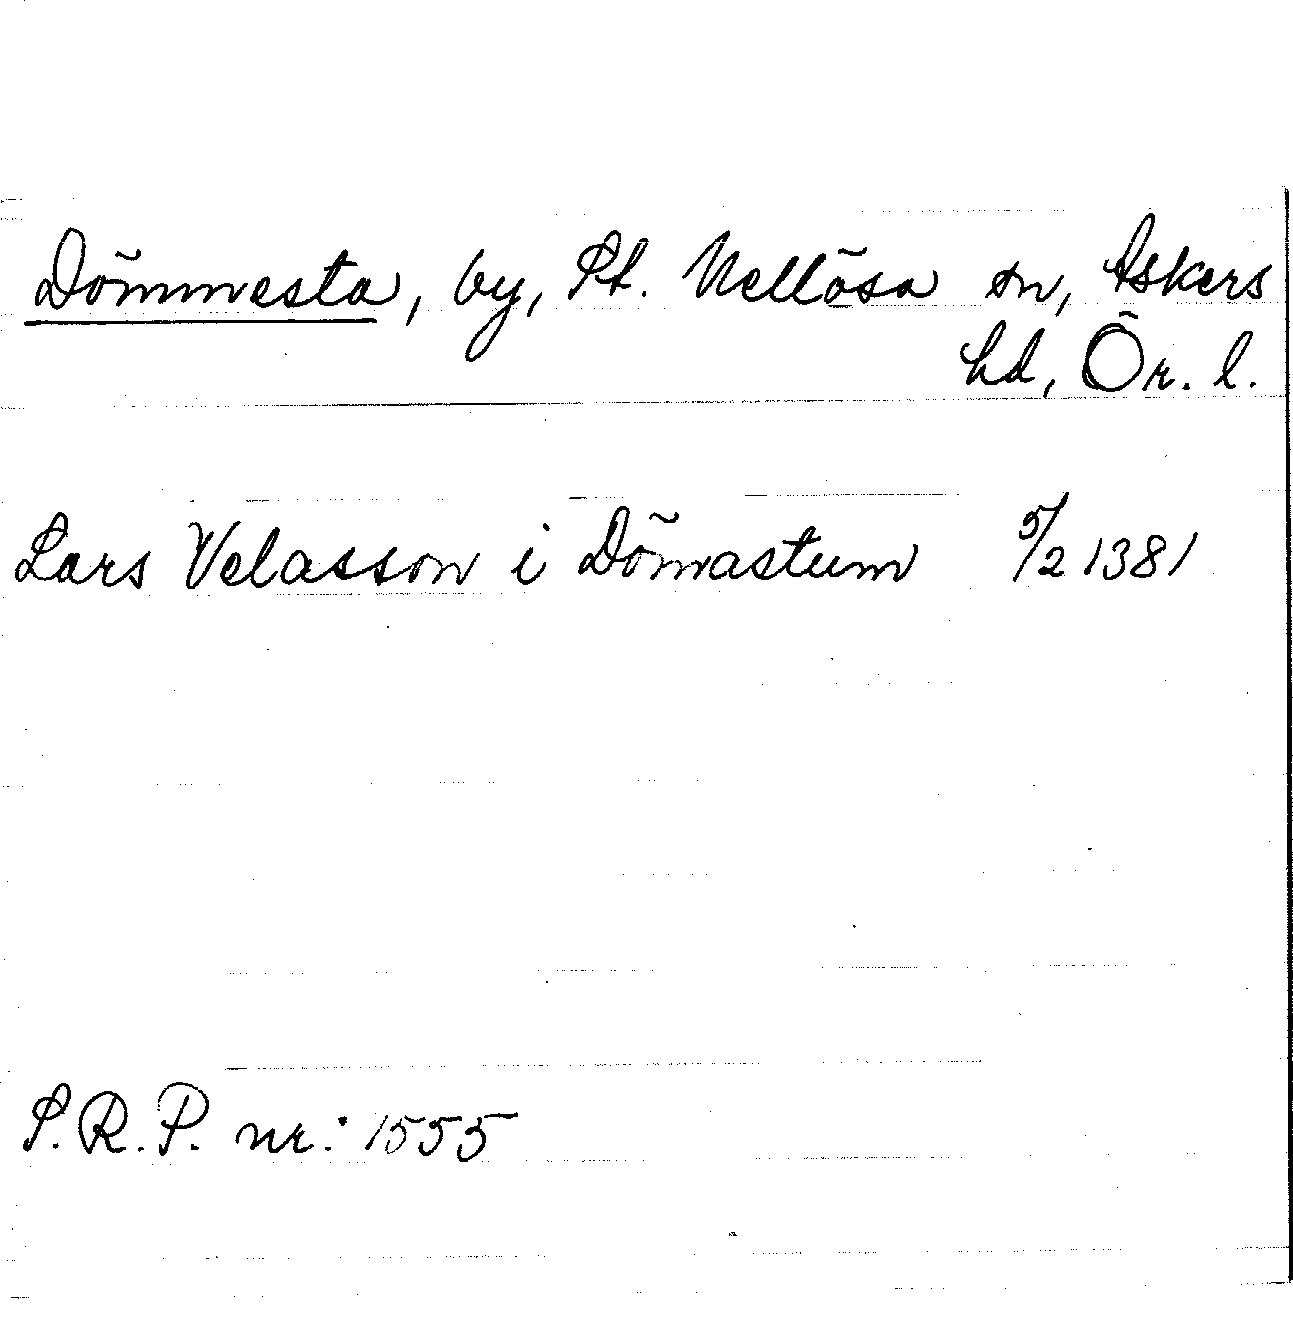 Dömmesta, by, St. Mellösa sn, Askers
hd, Ör. l.
Lars Velasson i Dömastum 5/2 1381
S.R.P. nr.: 1555